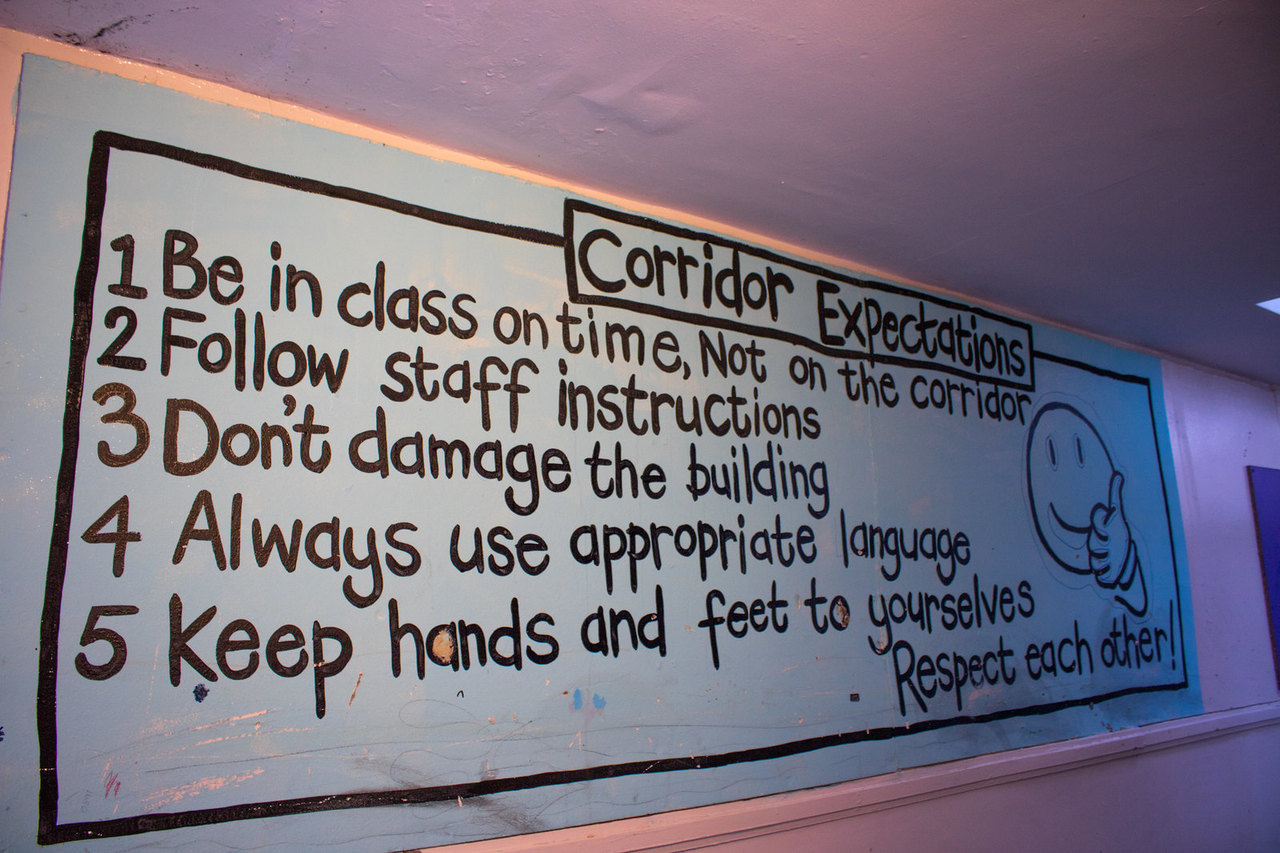 Corridor Expectations
1 Be in class on time, Not on the corridor
2 Follow staff instructions
3 Don't damage the building
4 Always use appropriate language
5 Keep hands and feet to yourselves
Respect each other!